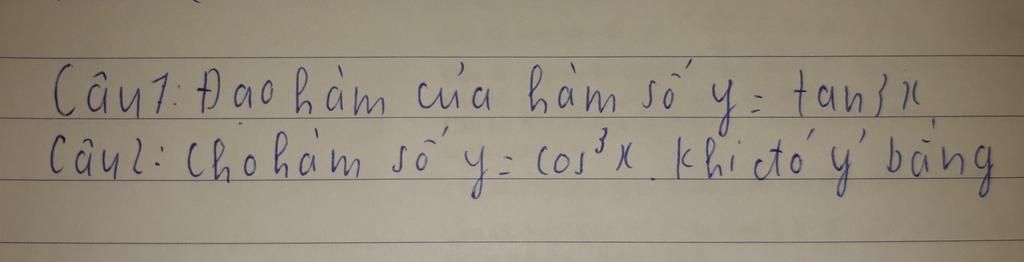 Câu1: Đạo hàm của hàm số y = tan3x
Câu2: Cho hàm số y = cos³x. Khi đó y' bằng